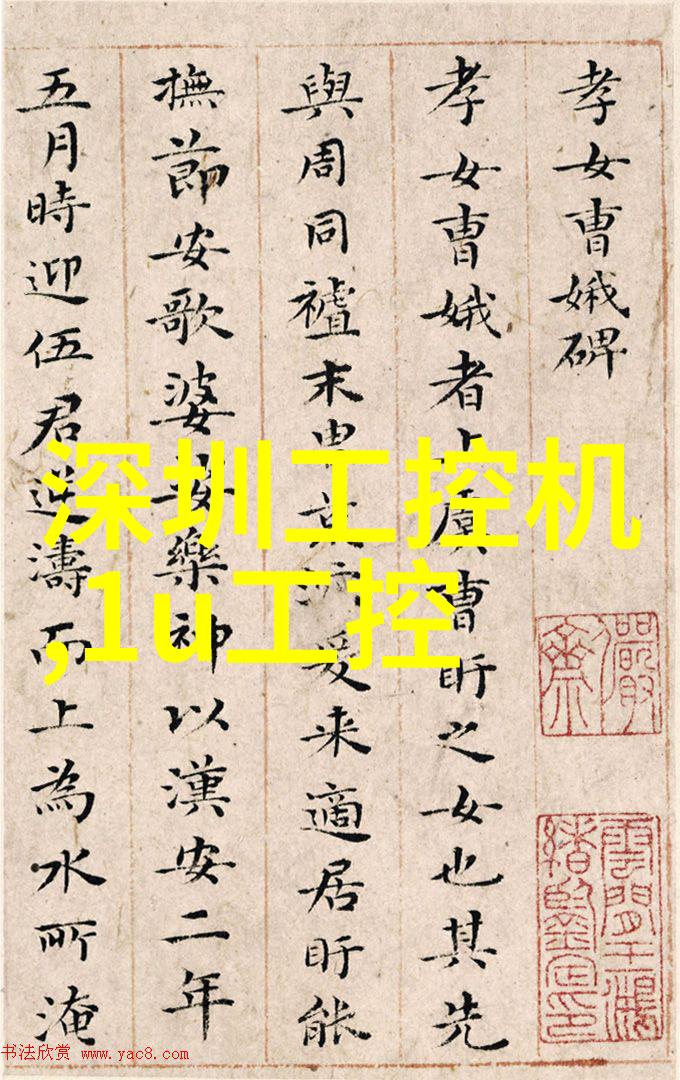 孝女曹娥碑
孝女曹娥者上虞曹盱之女也其先
與周同末爰来適居盱能
撫節安歌婆娑樂神以漢安二年
五月時迎伍君逆濤而上為水所淹
深圳工控机
,1u工控
儼齋
雲間王鴻緒鑒定印
书法欣赏 www.yac8.com